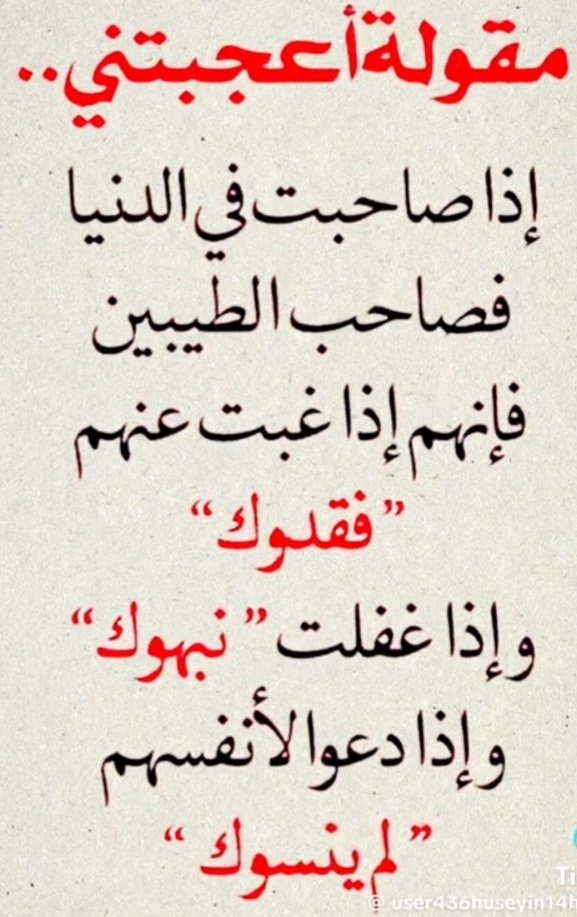 مقولة أعجبتني..
إذا صاحبت في الدنيا
فصاحب الطيبين
فإنهم إذا غبت عنهم
”فقدوك“
وإذا غفلت ”نبهوك“
وإذا دعوا لأنفسهم
”لم ينسوك“
Ti
@user436huseyin14h